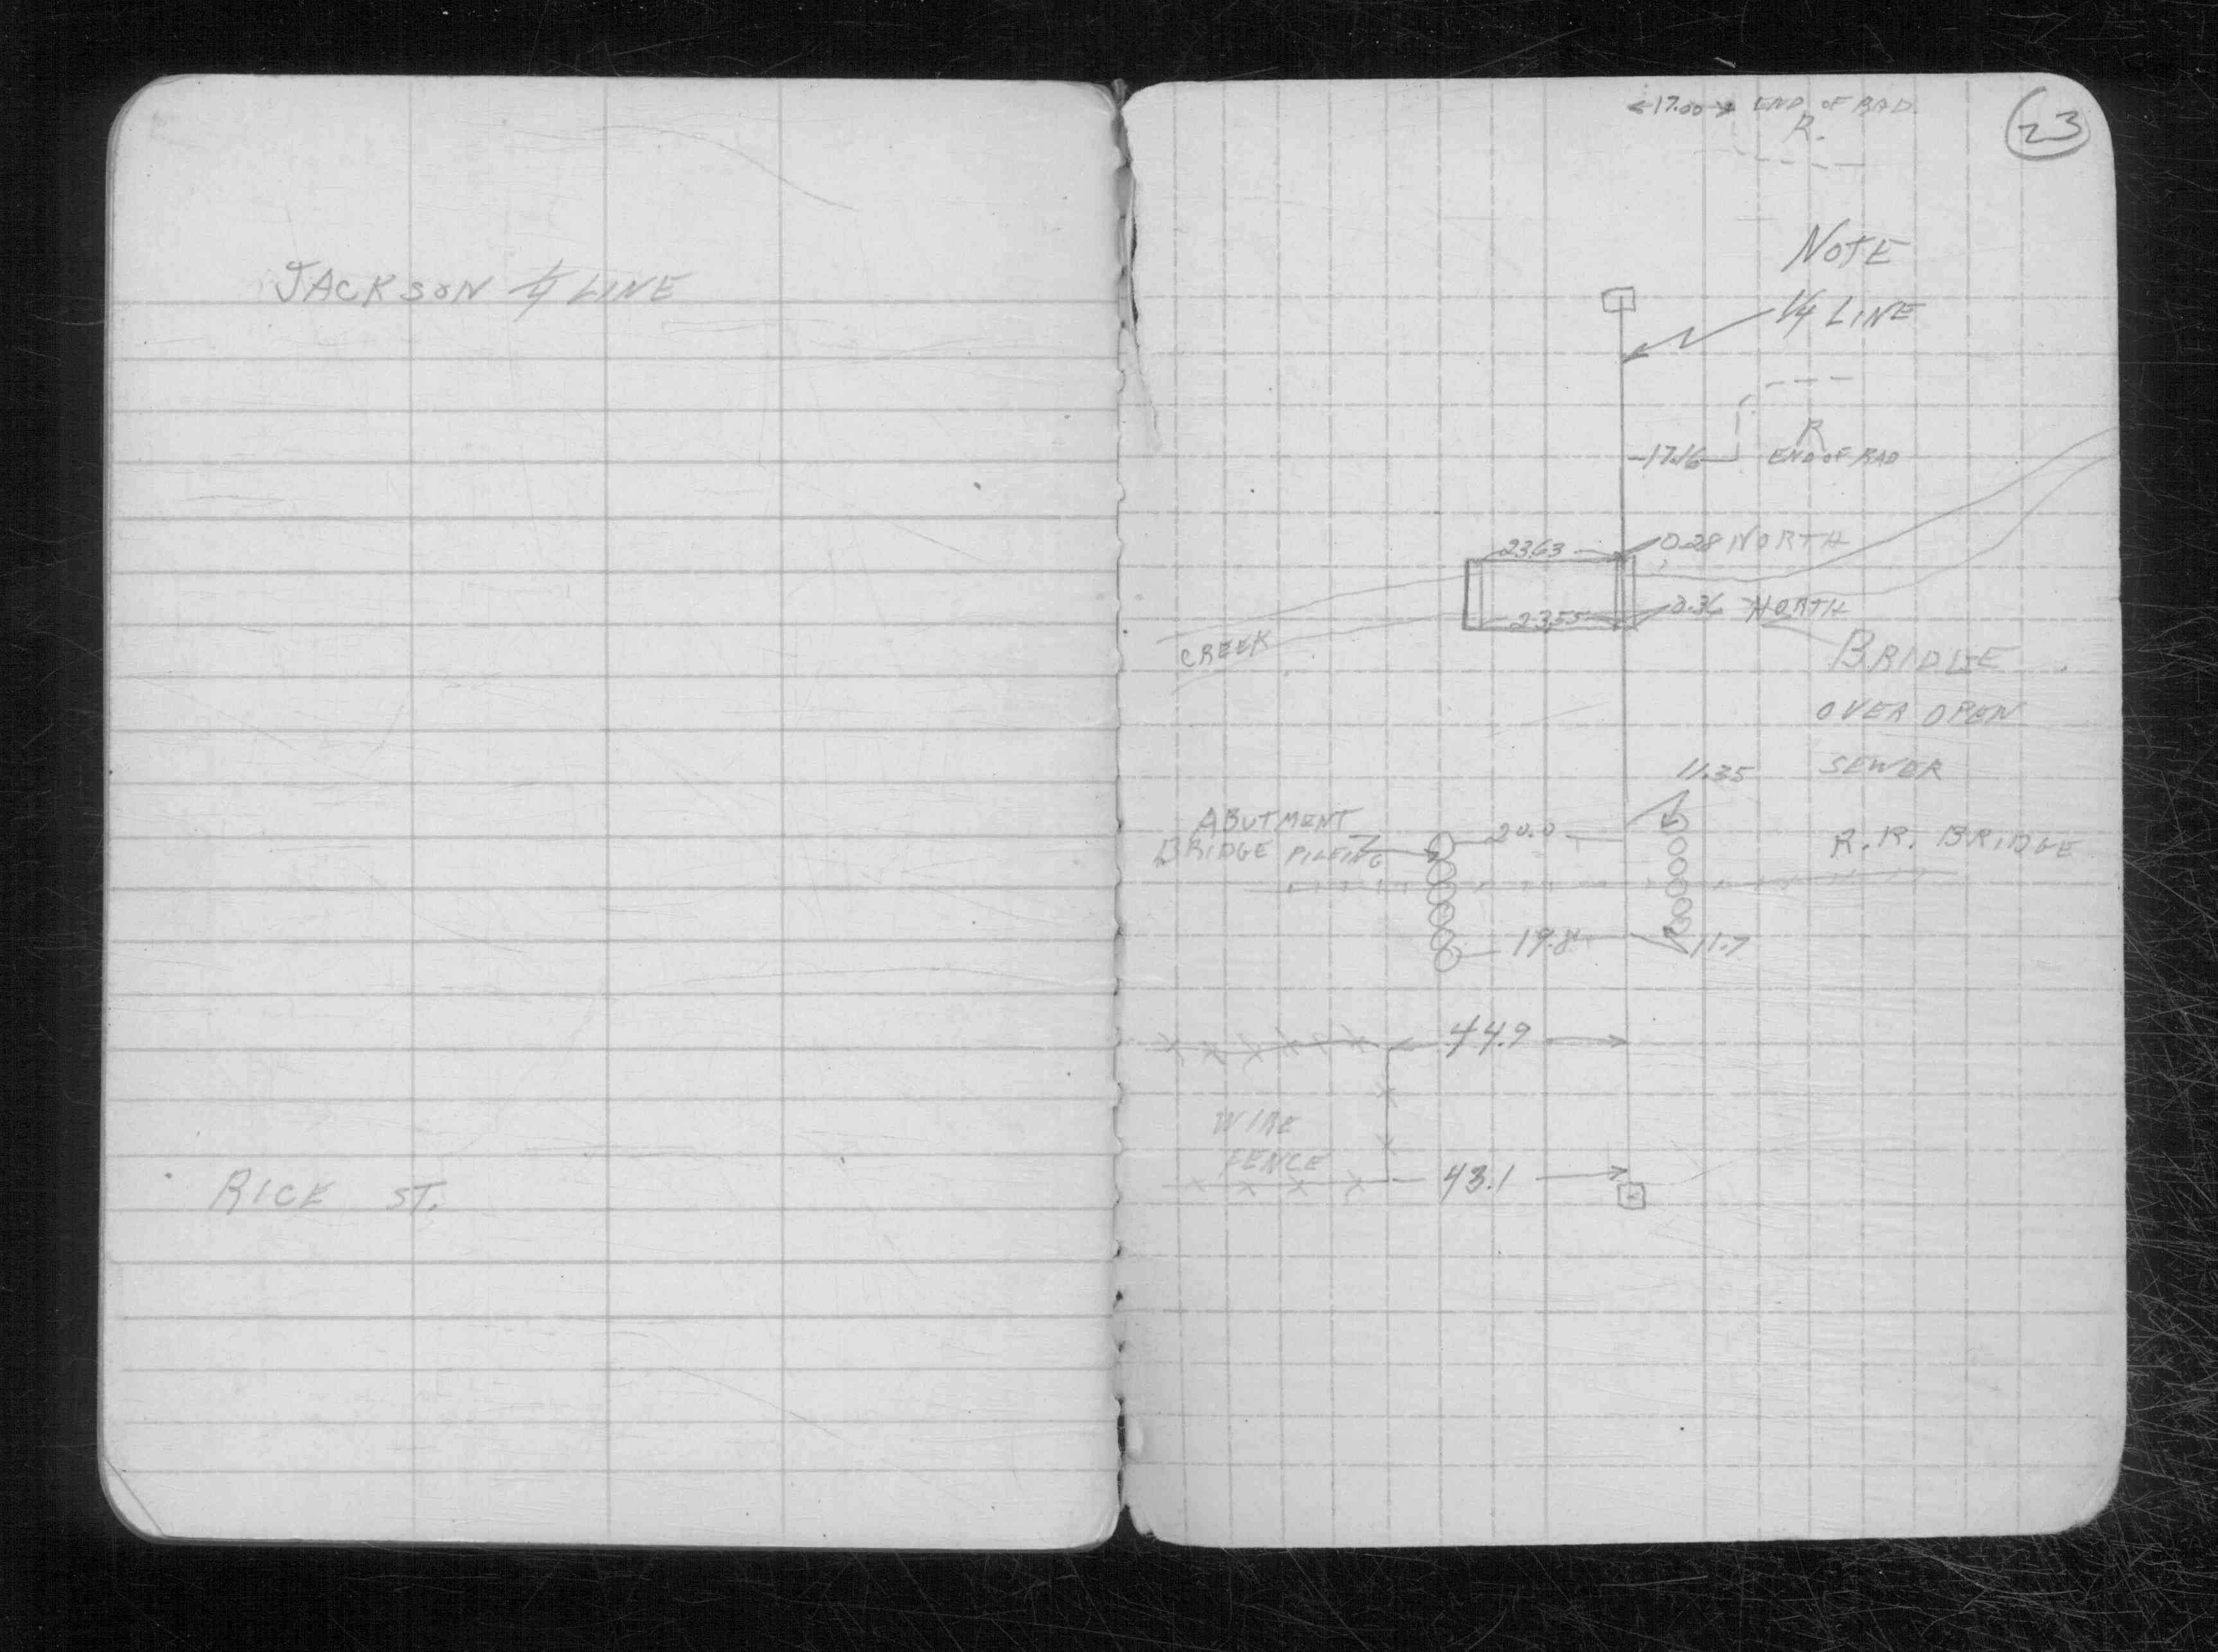 JACKSON 1/4 LINE
RICE ST.
23
17.00 END OF RAD.
R.
NOTE
1/4 LINE
17.16
R
END OF RAD
23.63
0.28 NORTH
23.55
0.36 NORTH
CREEK
BRIDGE
OVER OPEN
SEWER
11.35
ABUTMENT
BRIDGE PILEING
20.0
R.R. BRIDGE
19.8
11.7
44.9
WIRE
FENCE
43.1